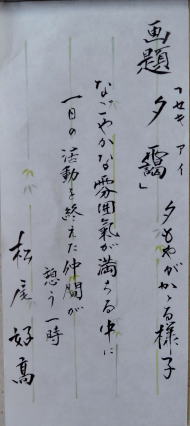 画題
「夕靄」
セキアイ
夕もやがかゝる様子
なごやかな雰囲氣が満ちる中に
一日の活動を終えた仲間が
憩う一時
松尾好高